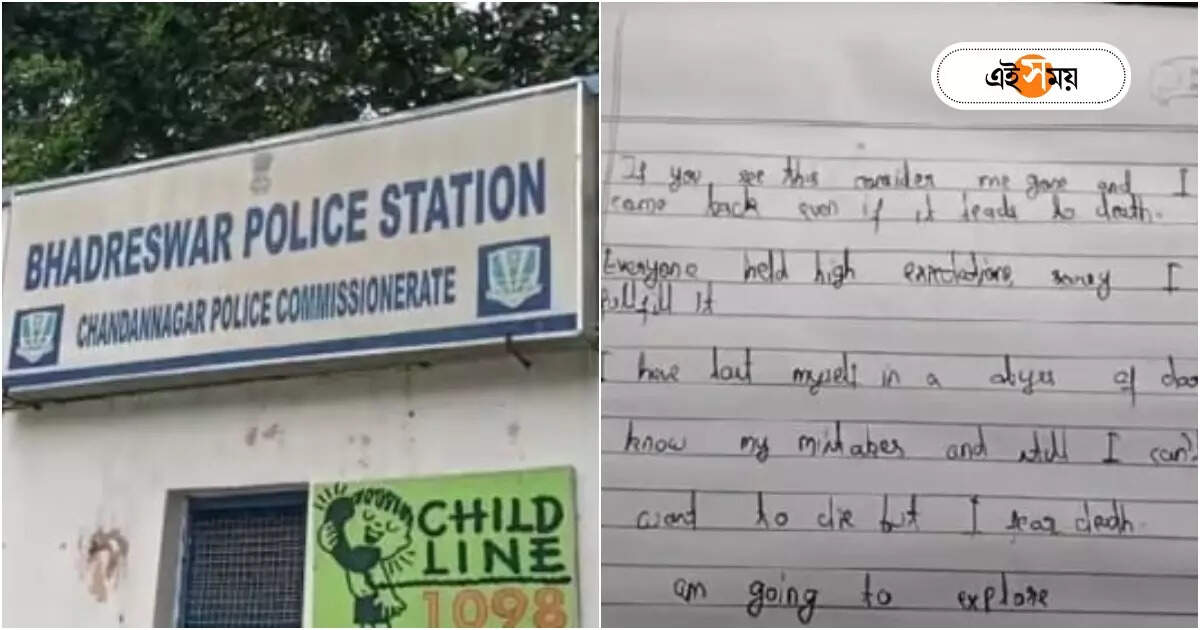 BHADRESWAR POLICE STATION
CHANDANNAGAR POLICE COMMISSIONERATE
CHILD
LINE
1098
এই সময়
If you see this consider me gone and I
come back even if it leads to death.
Everyone held high expectations, sorry I
fullfill it
I have lost myself in a abyss of
know my mistakes and still I can't
want to die but I fear death.
am going to explore